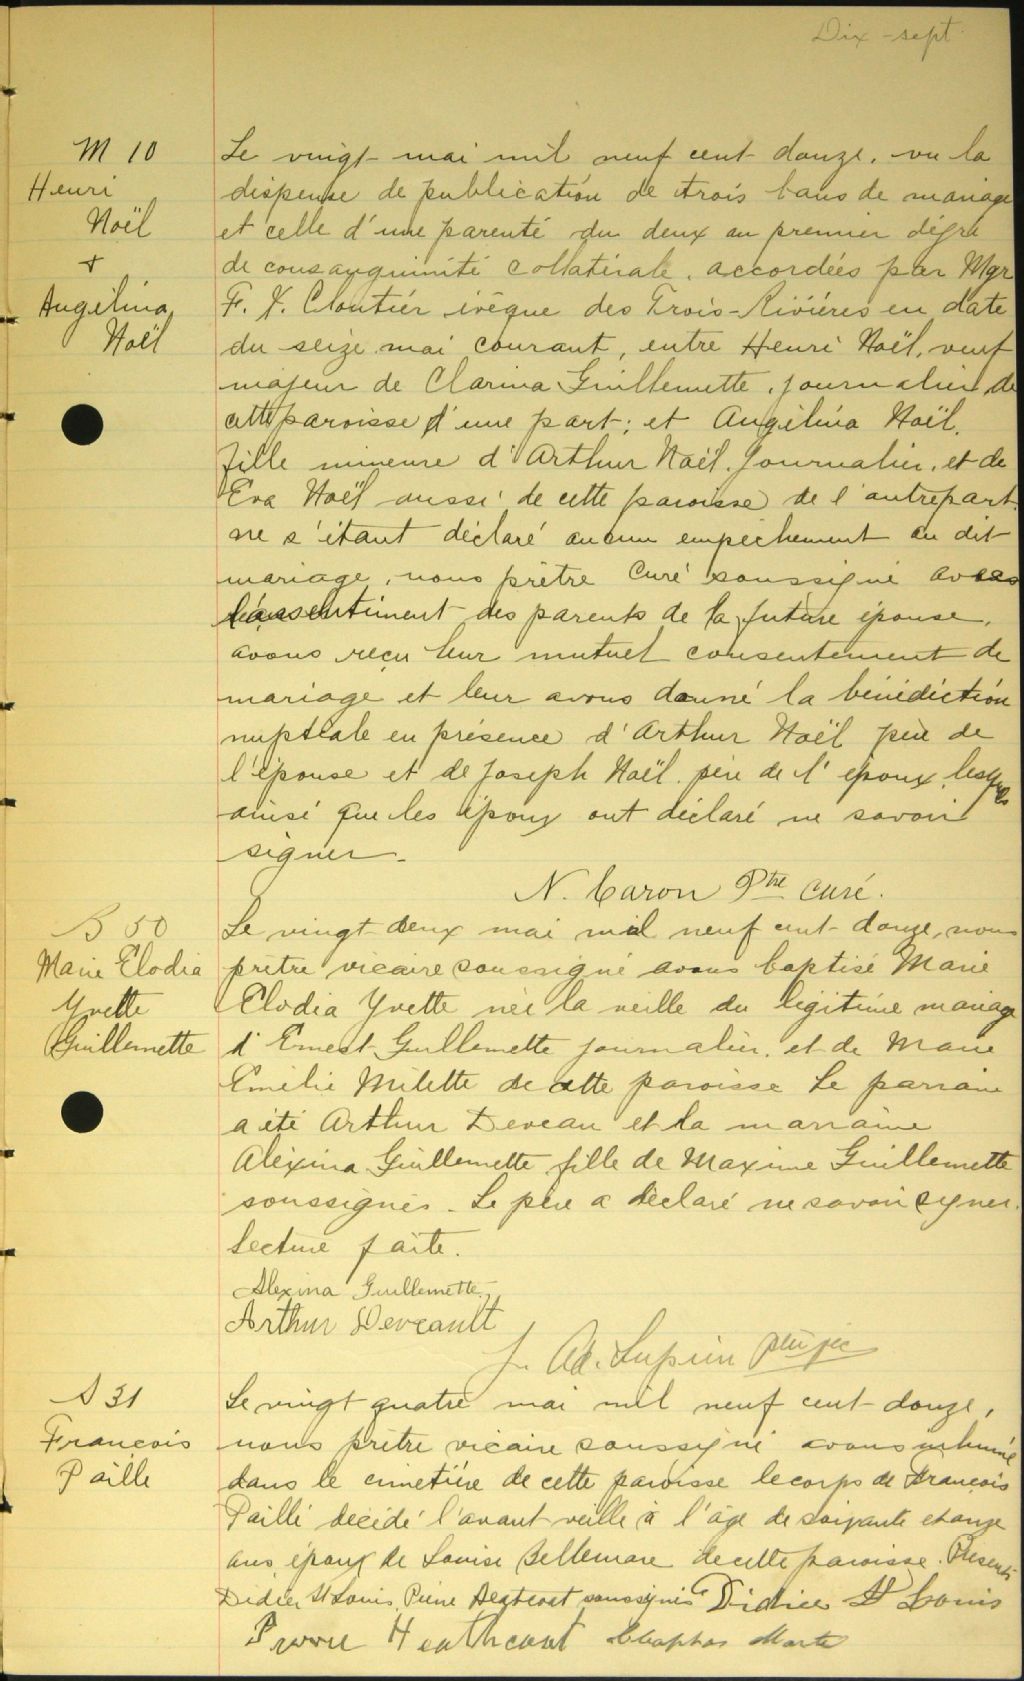 Dix-sept
M 10
Henri
Noël
+
Angélina
Noël
Le vingt mai mil neuf cent douze, vu la
dispense de publication de trois bans de mariage
et celle d'une parenté du deux au premier dégré
de consanguinité collatérale, accordées par Mgr
F. X. Cloutier évêque des Trois-Rivières en date
du seize mai courant, entre Henri Noël, veuf
majeur de Clarina Guillemette, journalier de
cette paroisse d'une part; et Angélina Noël,
fille mineure d'Arthur Noël, journalier, et de
Eva Noël aussi de cette paroisse de l'autre part
ne s'étant déclaré aucun empêchement au dit
mariage, nous prêtre curé soussigné avec
consentiment des parents de la future épouse,
avons reçu leur mutuel consentement de
mariage et leur avons donné la bénédiction
nuptiale en présence d'Arthur Noël père de
l'épouse et de Joseph Noël père de l'époux, lesquels
ainsi que les époux ont déclaré ne savoir
signer.
N. Caron Ptre curé.
B 50
Marie Elodia
Yvette
Guillemette
Le vingt deux mai mil neuf cent douze, nous
prêtre vicaire soussigné avons baptisé Marie
Elodia Yvette née la veille du légitime mariage
d'Ernest Guillemette journalier, et de Marie
Emélie Milette de cette paroisse Le parrain
a été Arthur Deveau et la marraine
Alexina Guillemette fille de Maxime Guillemette
soussignés. Le père a déclaré ne savoir signer.
Lecture faite.
Alexina Guillemette
Arthur Deveault
J. Ad. Lupien
S 31
François
Paillé
Le vingt quatre mai mil neuf cent douze,
nous prêtre vicaire soussigné avons inhumé
dans le cimetière de cette paroisse le corps de François
Paillé décédé l'avant veille à l'âge de soixante et onze
ans, époux de Louise Bellemare de cette paroisse. Présents
Didier St Louis, Pierre soussignés Didier St Louis
Pierre Heathcoat Cléophas